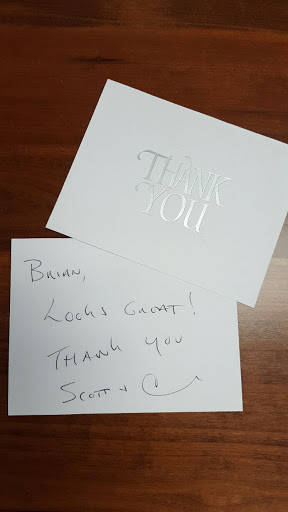 THANK
YOU
BRIAN,
LOOKS GREAT!
THANK YOU
SCOTT +